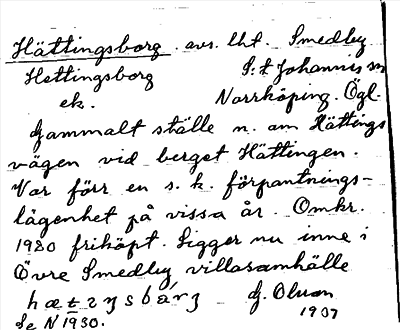 Hättingsborg. avs. lht. Smedby
Hettingsborg S:t Johannis sn
ek. Norrköping. Ögl.
Gammalt ställe n. om Hättings
vägen vid berget Hättingen.
Var förr en s. k. förpantnings-
lägenhet på vissa år. Omkr.
1920 friköpt. Ligger nu inne i
Övre Smedby villasamhälle
G. Olson
1937
Se N 1930.